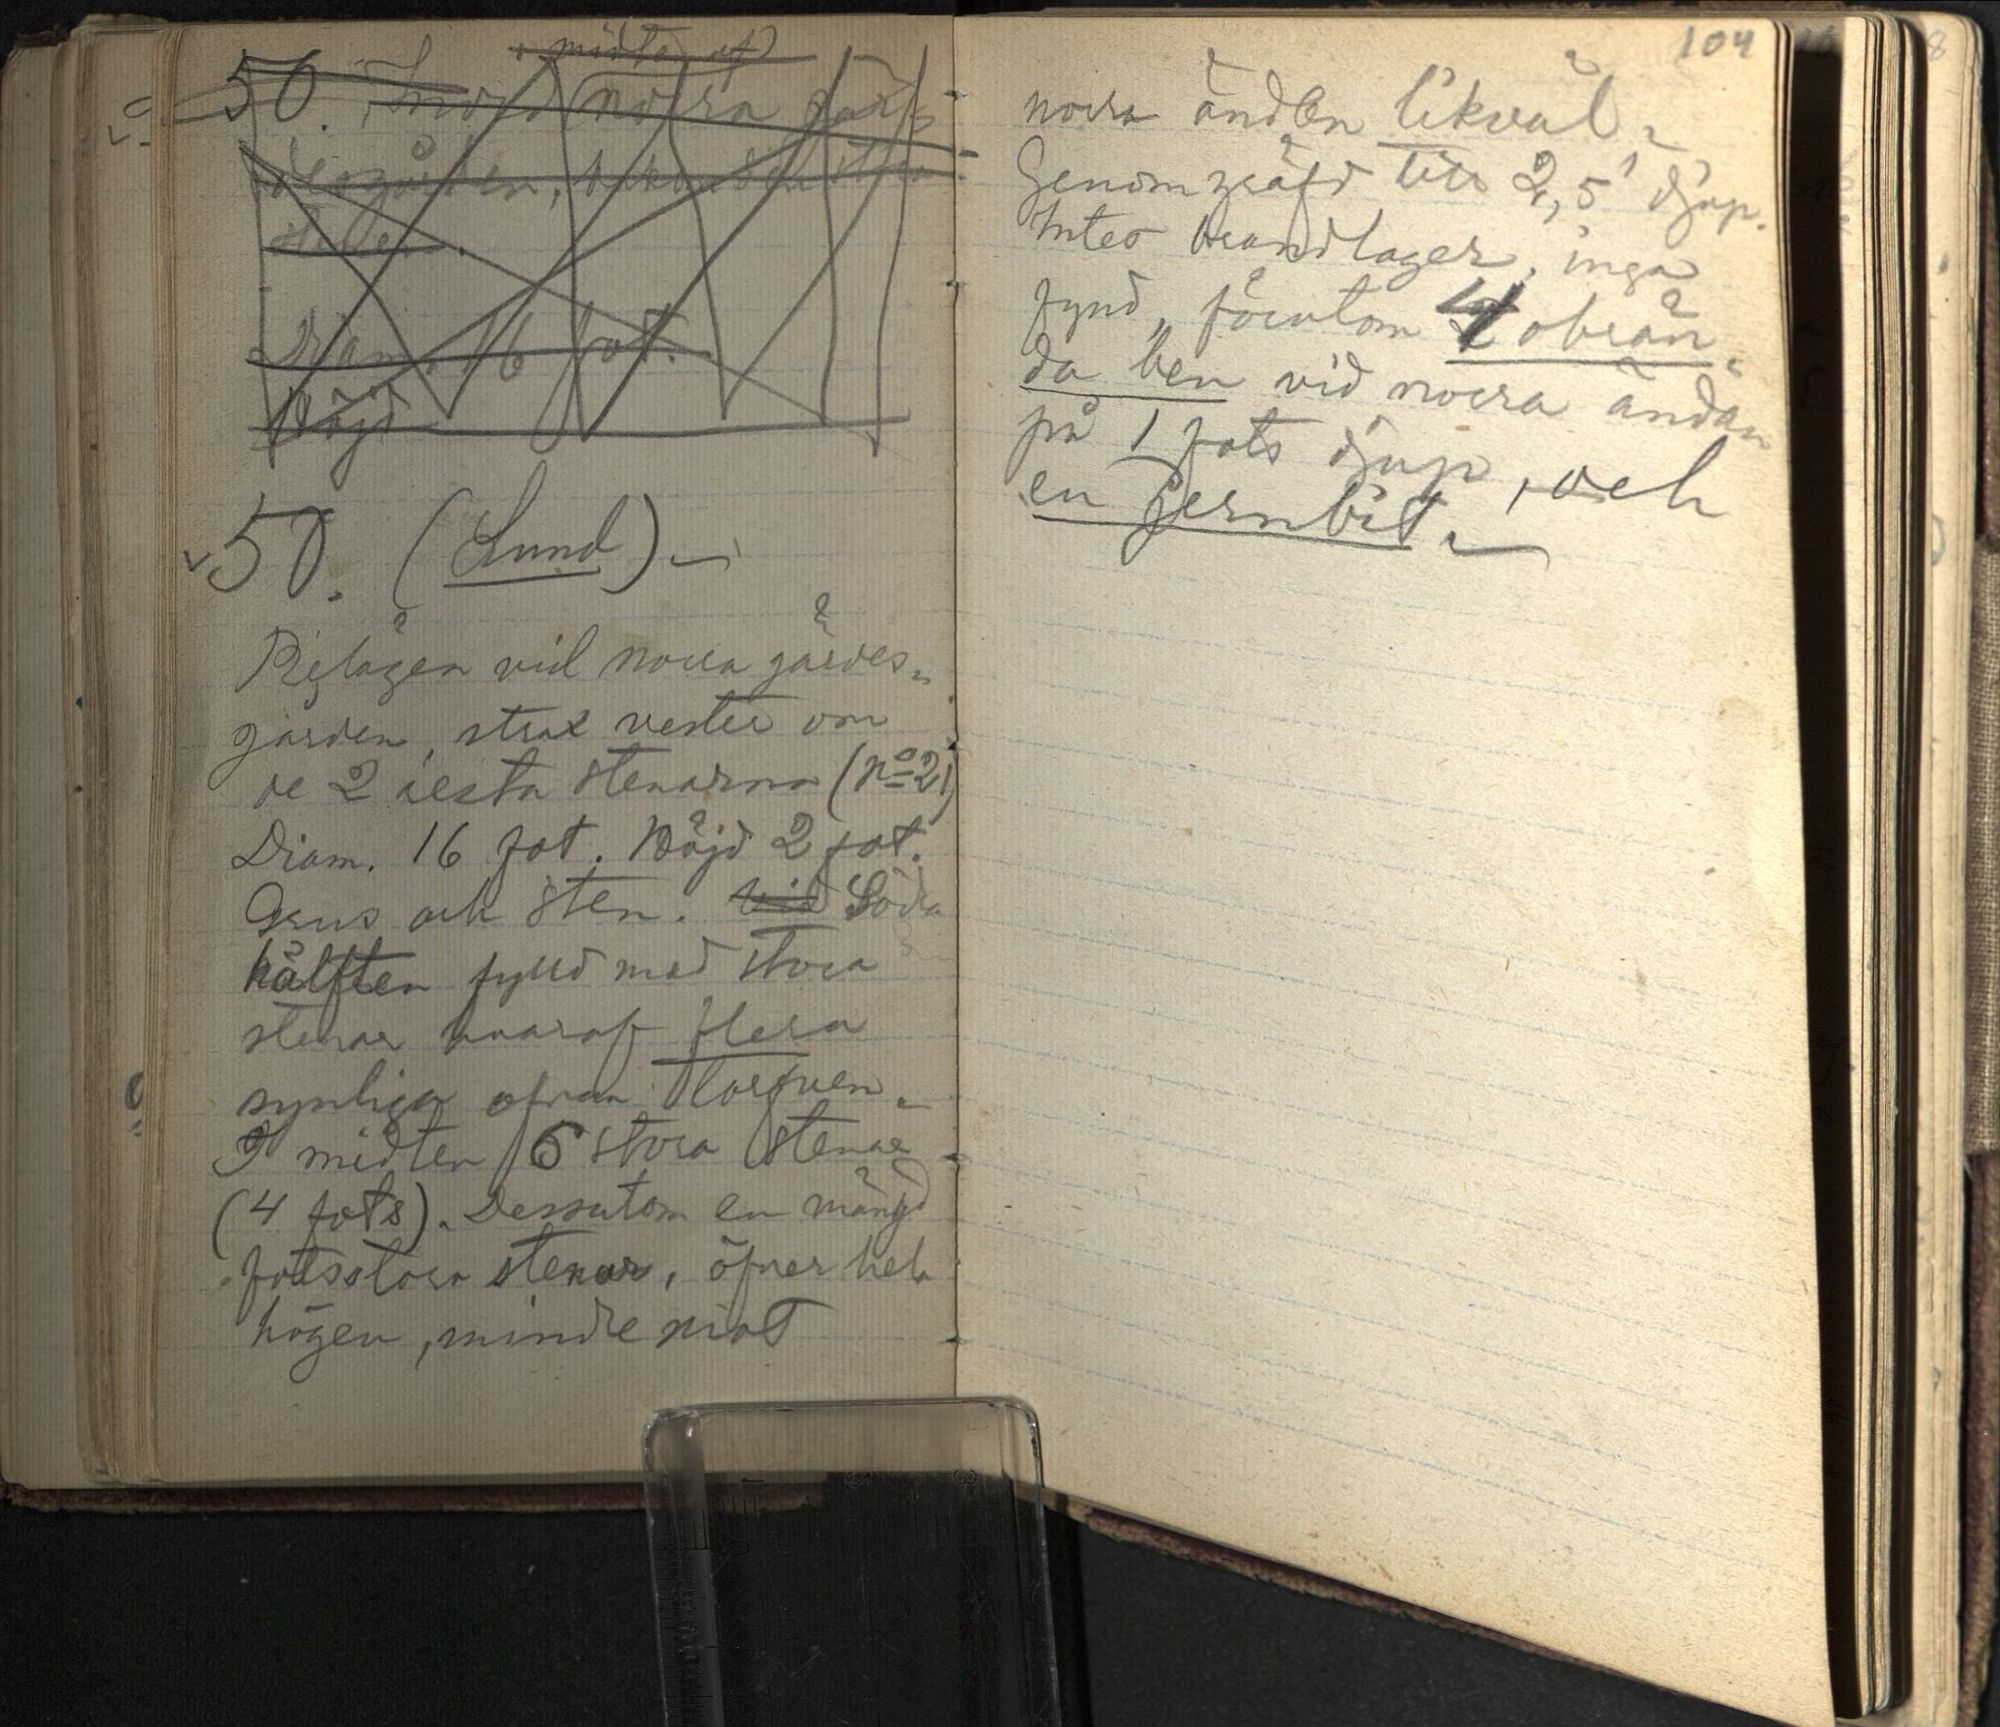 midten af
50. Invid norra gär-
desgården,
Diam. 16 fot.
Höjd
50. (Lund)
Belägen vid norra gärdes-
gården, strax vester om
de 2 resta stenarna (No 21)
Diam. 16 fot. Höjd 2 fot.
Grus och sten. Vid Södra
hälften fylld med stora
stenar hvaraf flera
synliga ofvan torfven.
I midten 6 stora stenar
(4 fots). Dessutom en mängd
fotsstora stenar, öfver hela
högen, mindre mot
104
norra änden likväl.
Genomgräfd till 2,5' djup.
Intet brandlager, inga
fynd, förutom 4 obrän-
da ben vid norra ändan
på 1 fots djup, och
en jernbit.